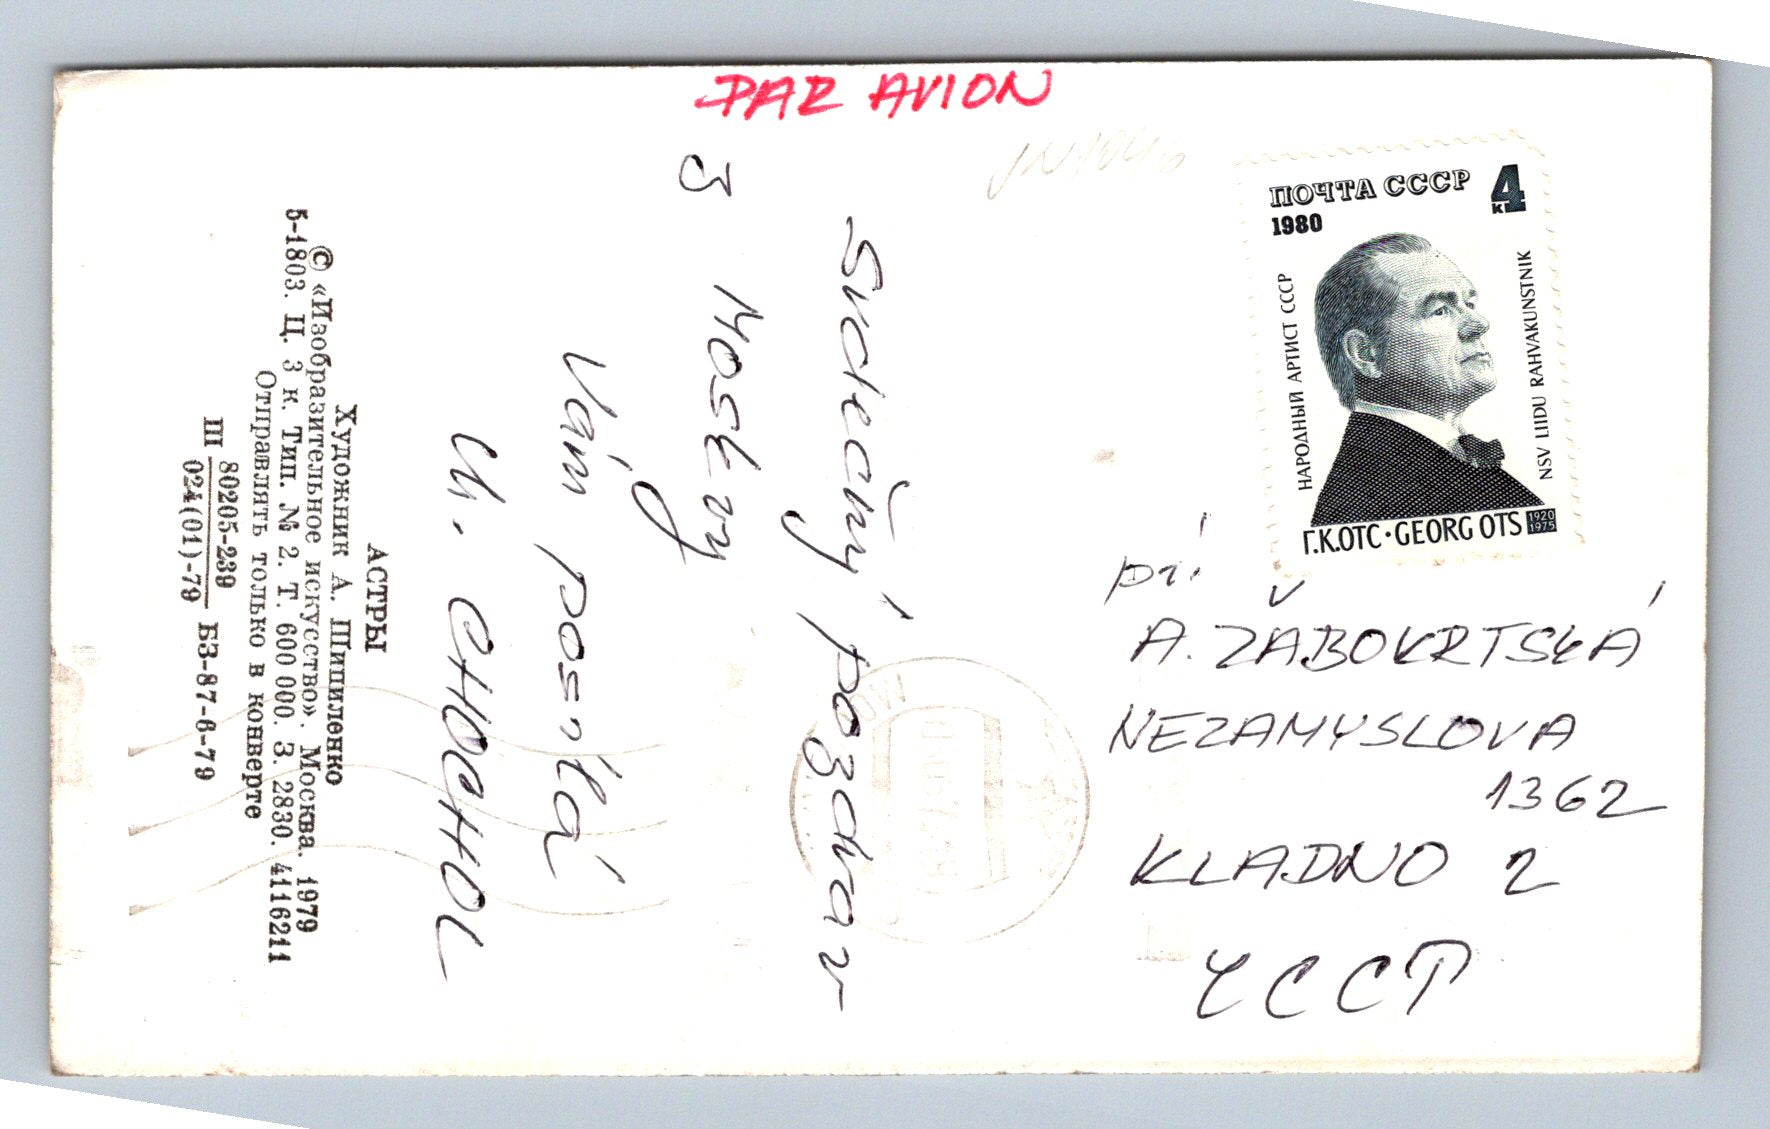 PAR AVION
ПОЧТА СССР 4 к
1980
НАРОДНЫЙ АРТИСТ СССР
NSV LIIDU RAHVAKUNSTNIK
Г.К.ОТС·GEORG OTS 1920 1975
Srdečný pozdrav
z Moskvy
Vám posílá
př.
A. ŽÁBOKRTSKÁ
NEZAMYSLOVA
1362
KLADNO 2
ЧССР
АСТРЫ
Художник А. Шипиленко
© «Изобразительное искусство». Москва. 1979
5-1803. Ц. 3 к. Тип. № 2. Т. 600 000. З. 2830. 4116211
Отправлять только в конверте
Ш 80205-239
024(01)-79 БЗ-87-6-79